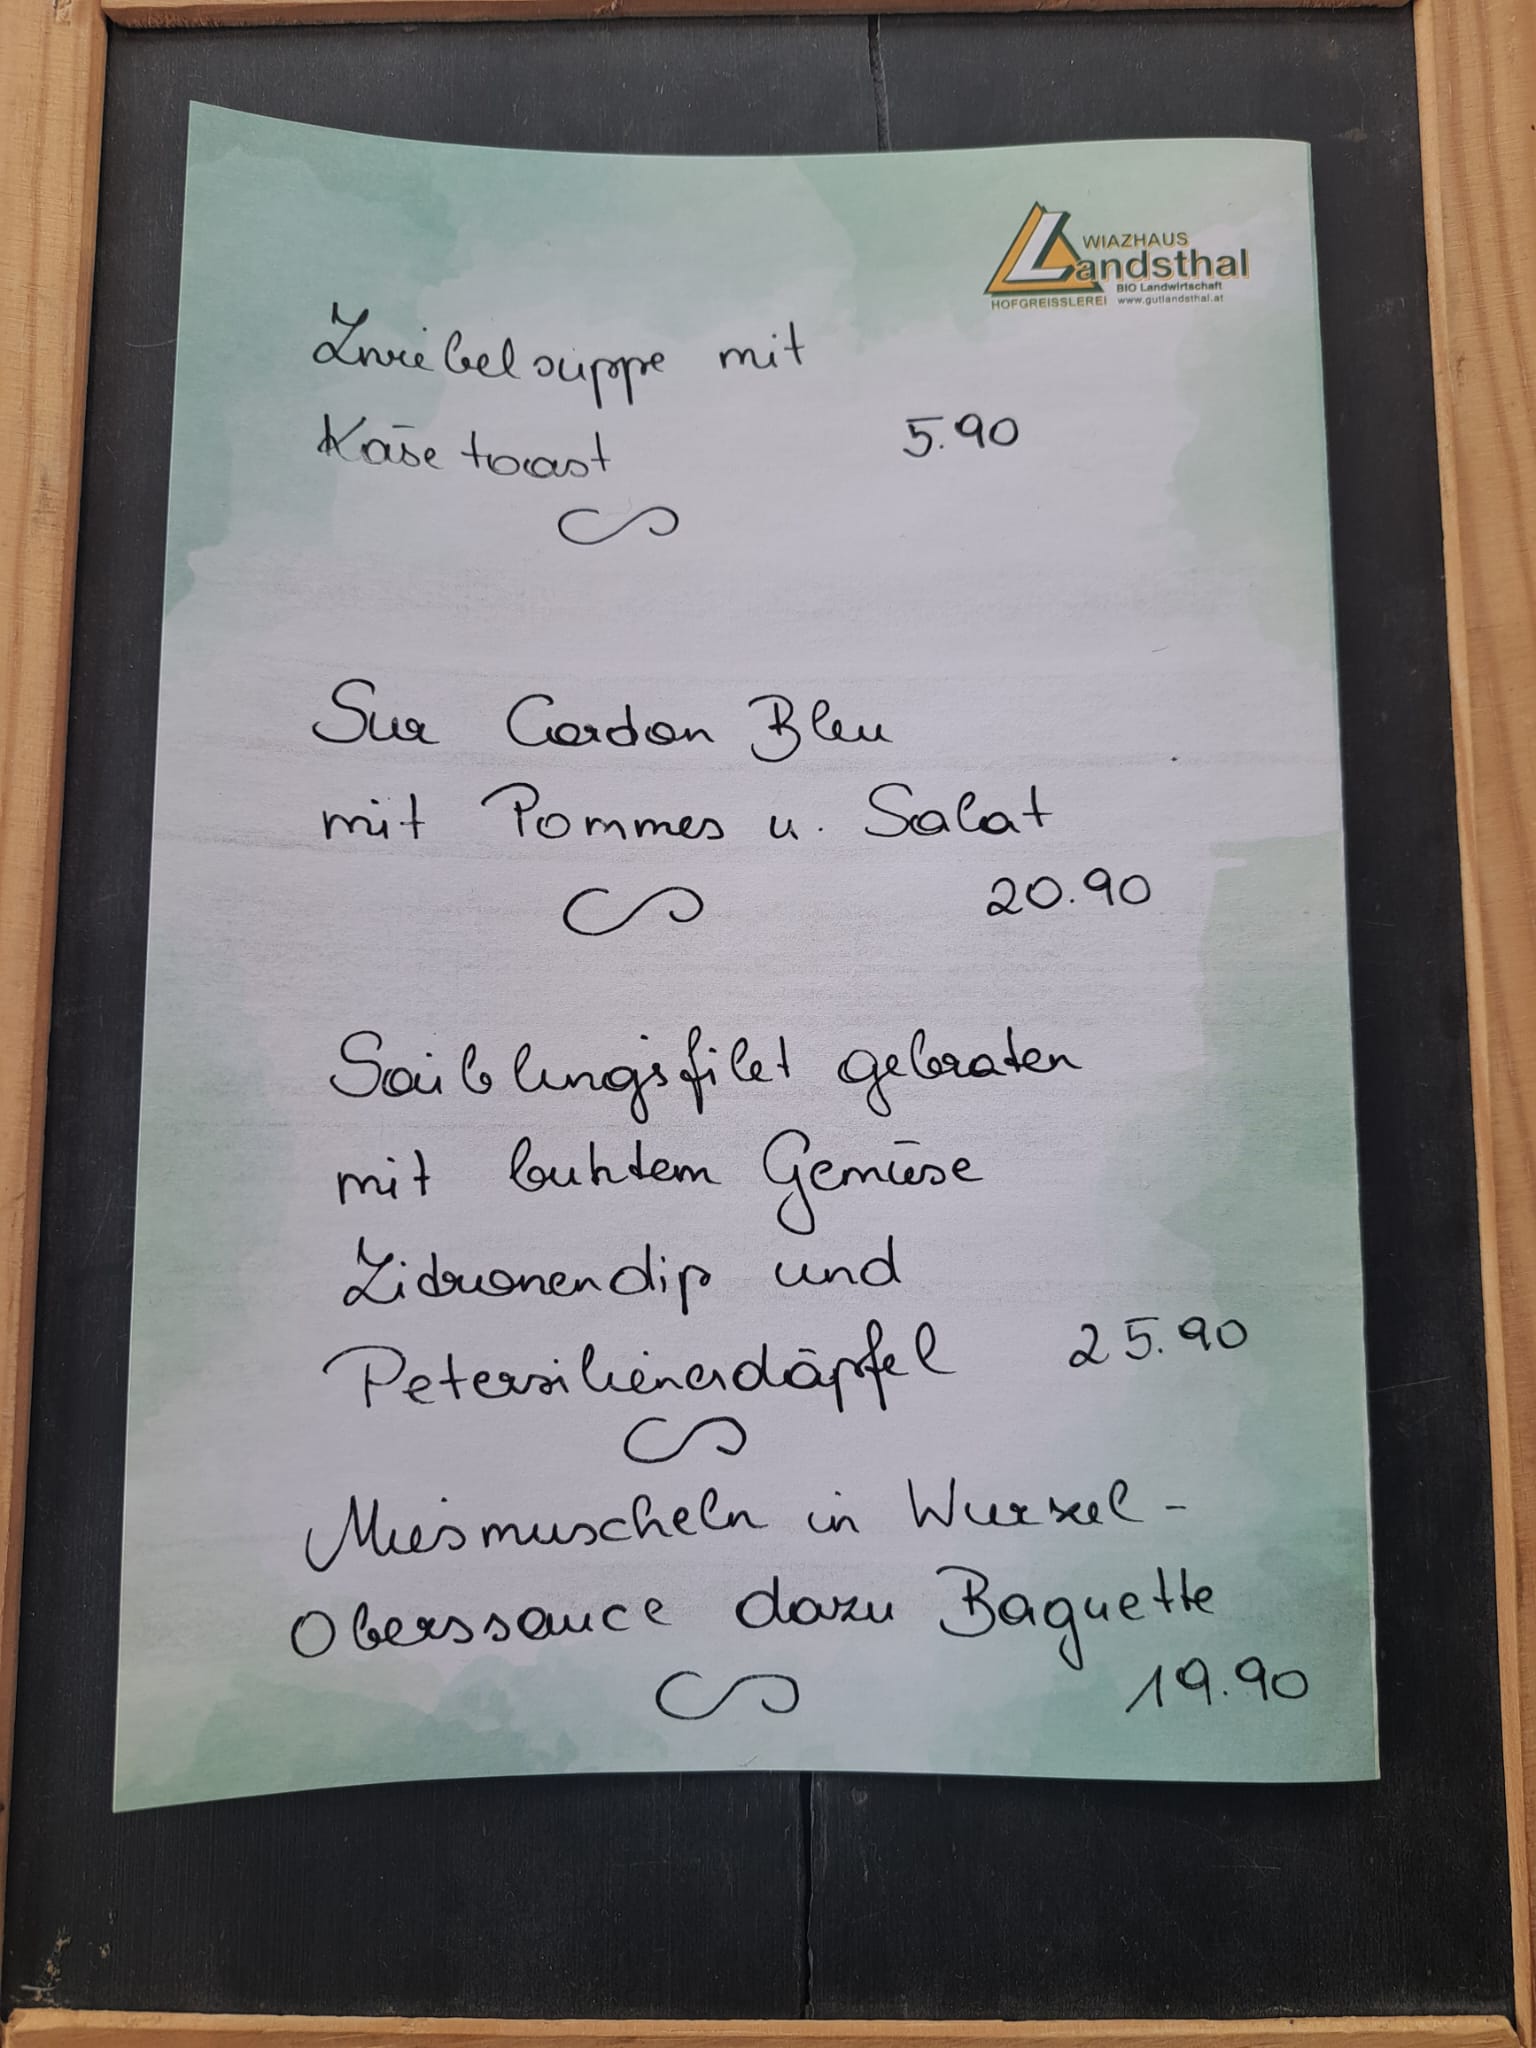 WIAZHAUS
Landsthal
BIO Landwirtschaft
HOFGREISSLEREI www.gutlandsthal.at
Zwiebelsuppe mit
Käsetoast 5.90
Sur Cordon Bleu
mit Pommes u. Salat
20.90
Saiblingsfilet gebraten
mit buntem Gemüse
Zitronendip und
Petersilienerdäpfel 25.90
Miesmuscheln in Wurzel-
Oberssauce dazu Baguette
19.90